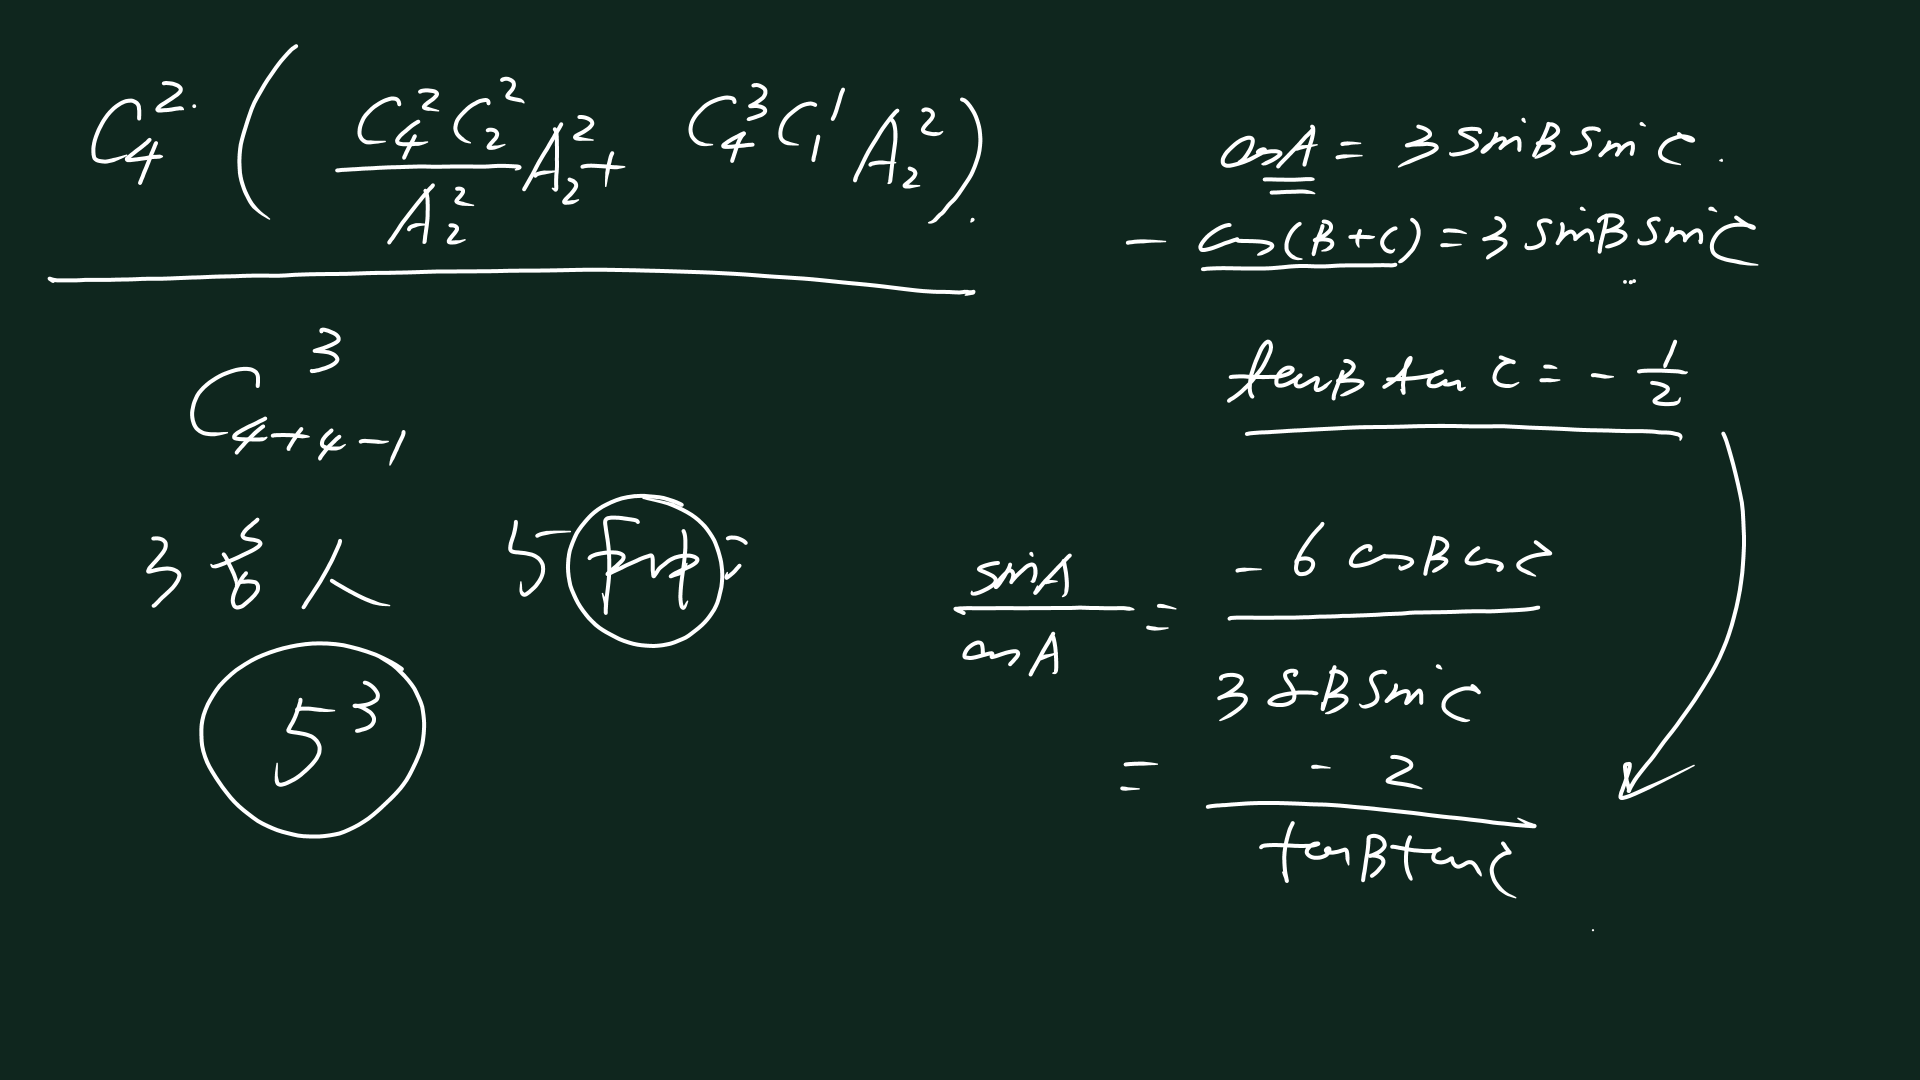 C₄² ( C₄²C₂² / A₂² A₂² + C₄³C₁¹ A₂² )
C₄₊₄₋₁³
3 名人 5
5³
cosA = 3 sinB sinC .
- cos(B+C) = 3 sinB sinC
tanB tanC = - 1/2
sinA / cosA = - 6 cosB cosC / 3 sinB sinC
= - 2 / tanB tanC